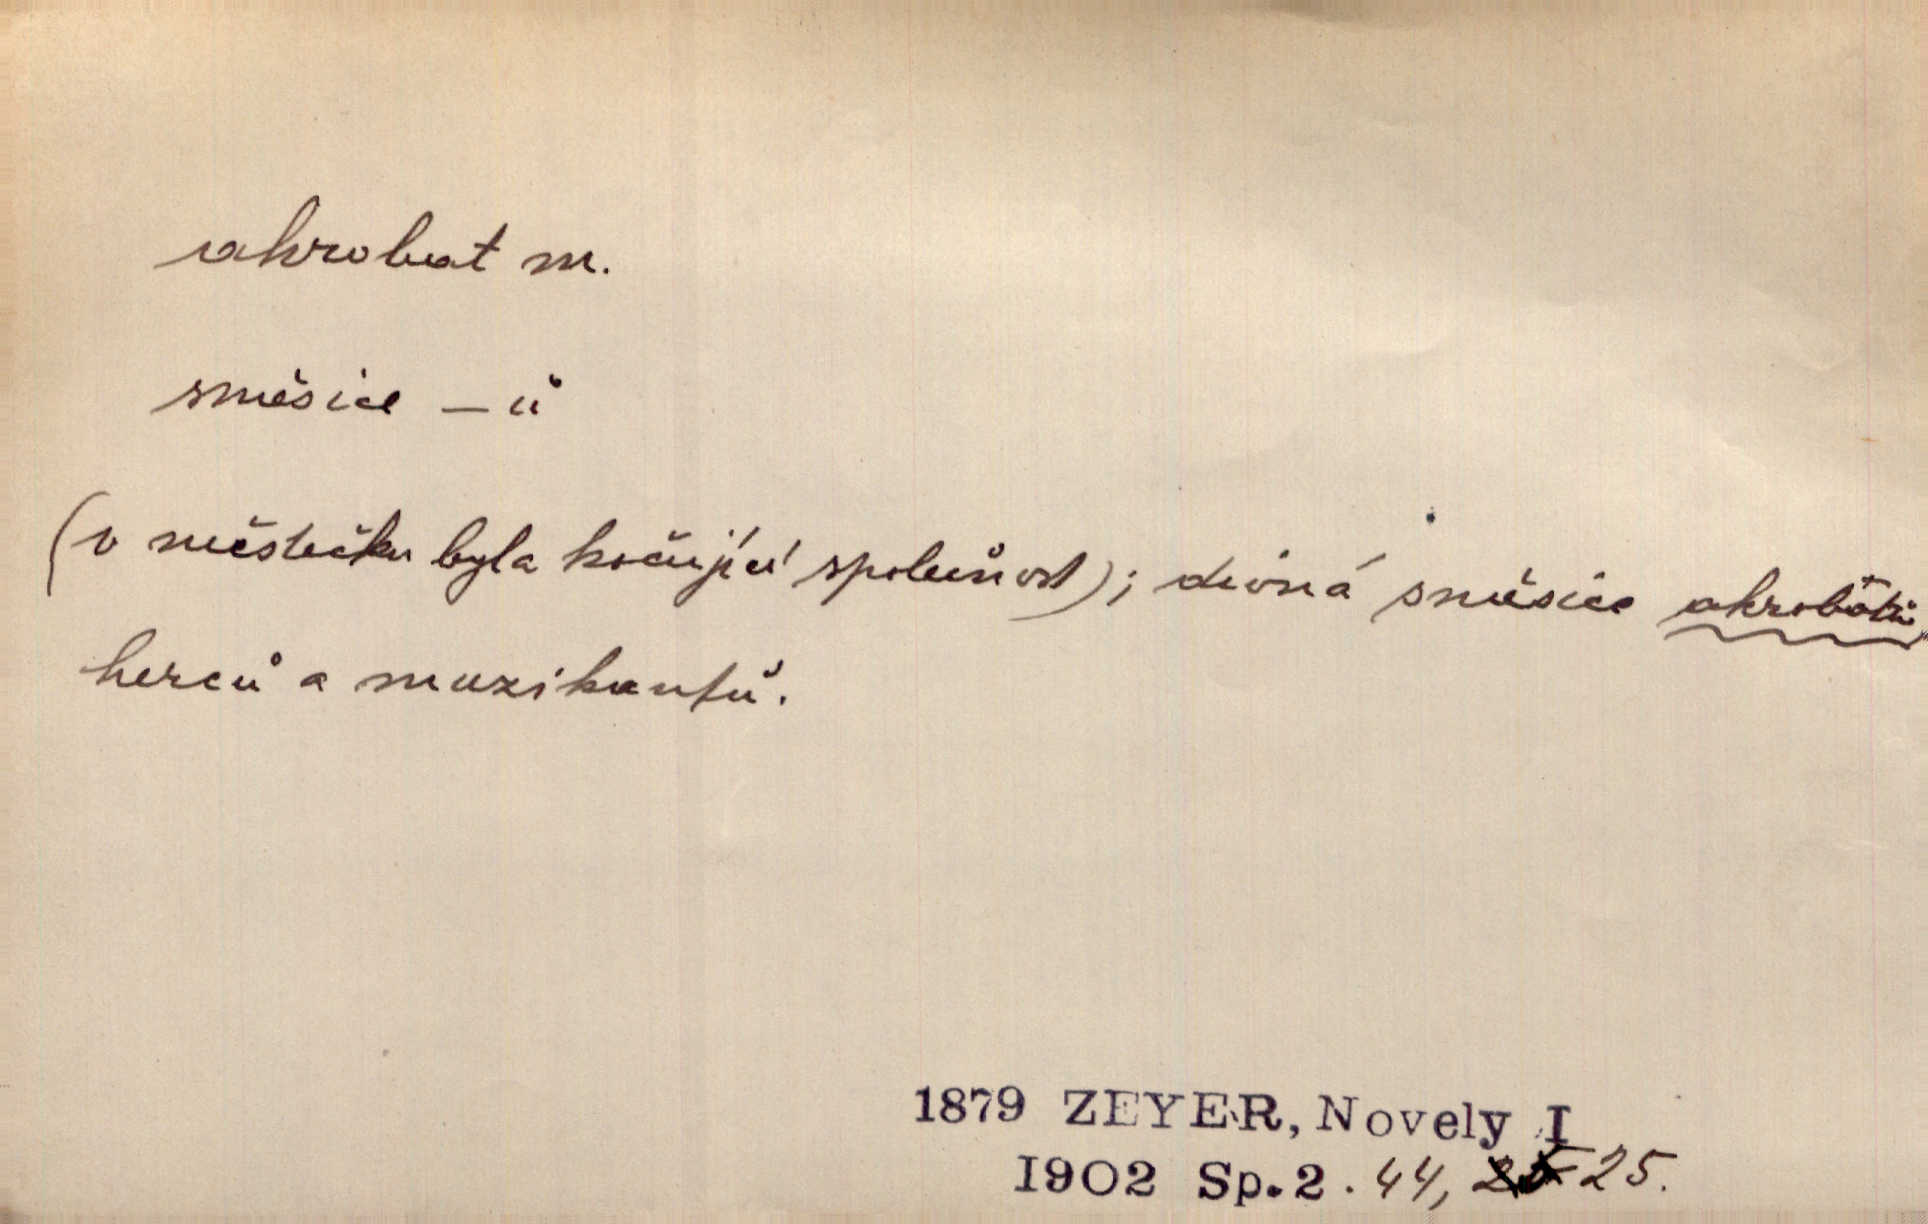 akrobat m.
směsice – ů
(v městečku byla kočující společnost); divná směsice akrobatů,
herců a muzikantů.
1879 ZEYER, Novely I
1902 Sp. 2. 44, 25.